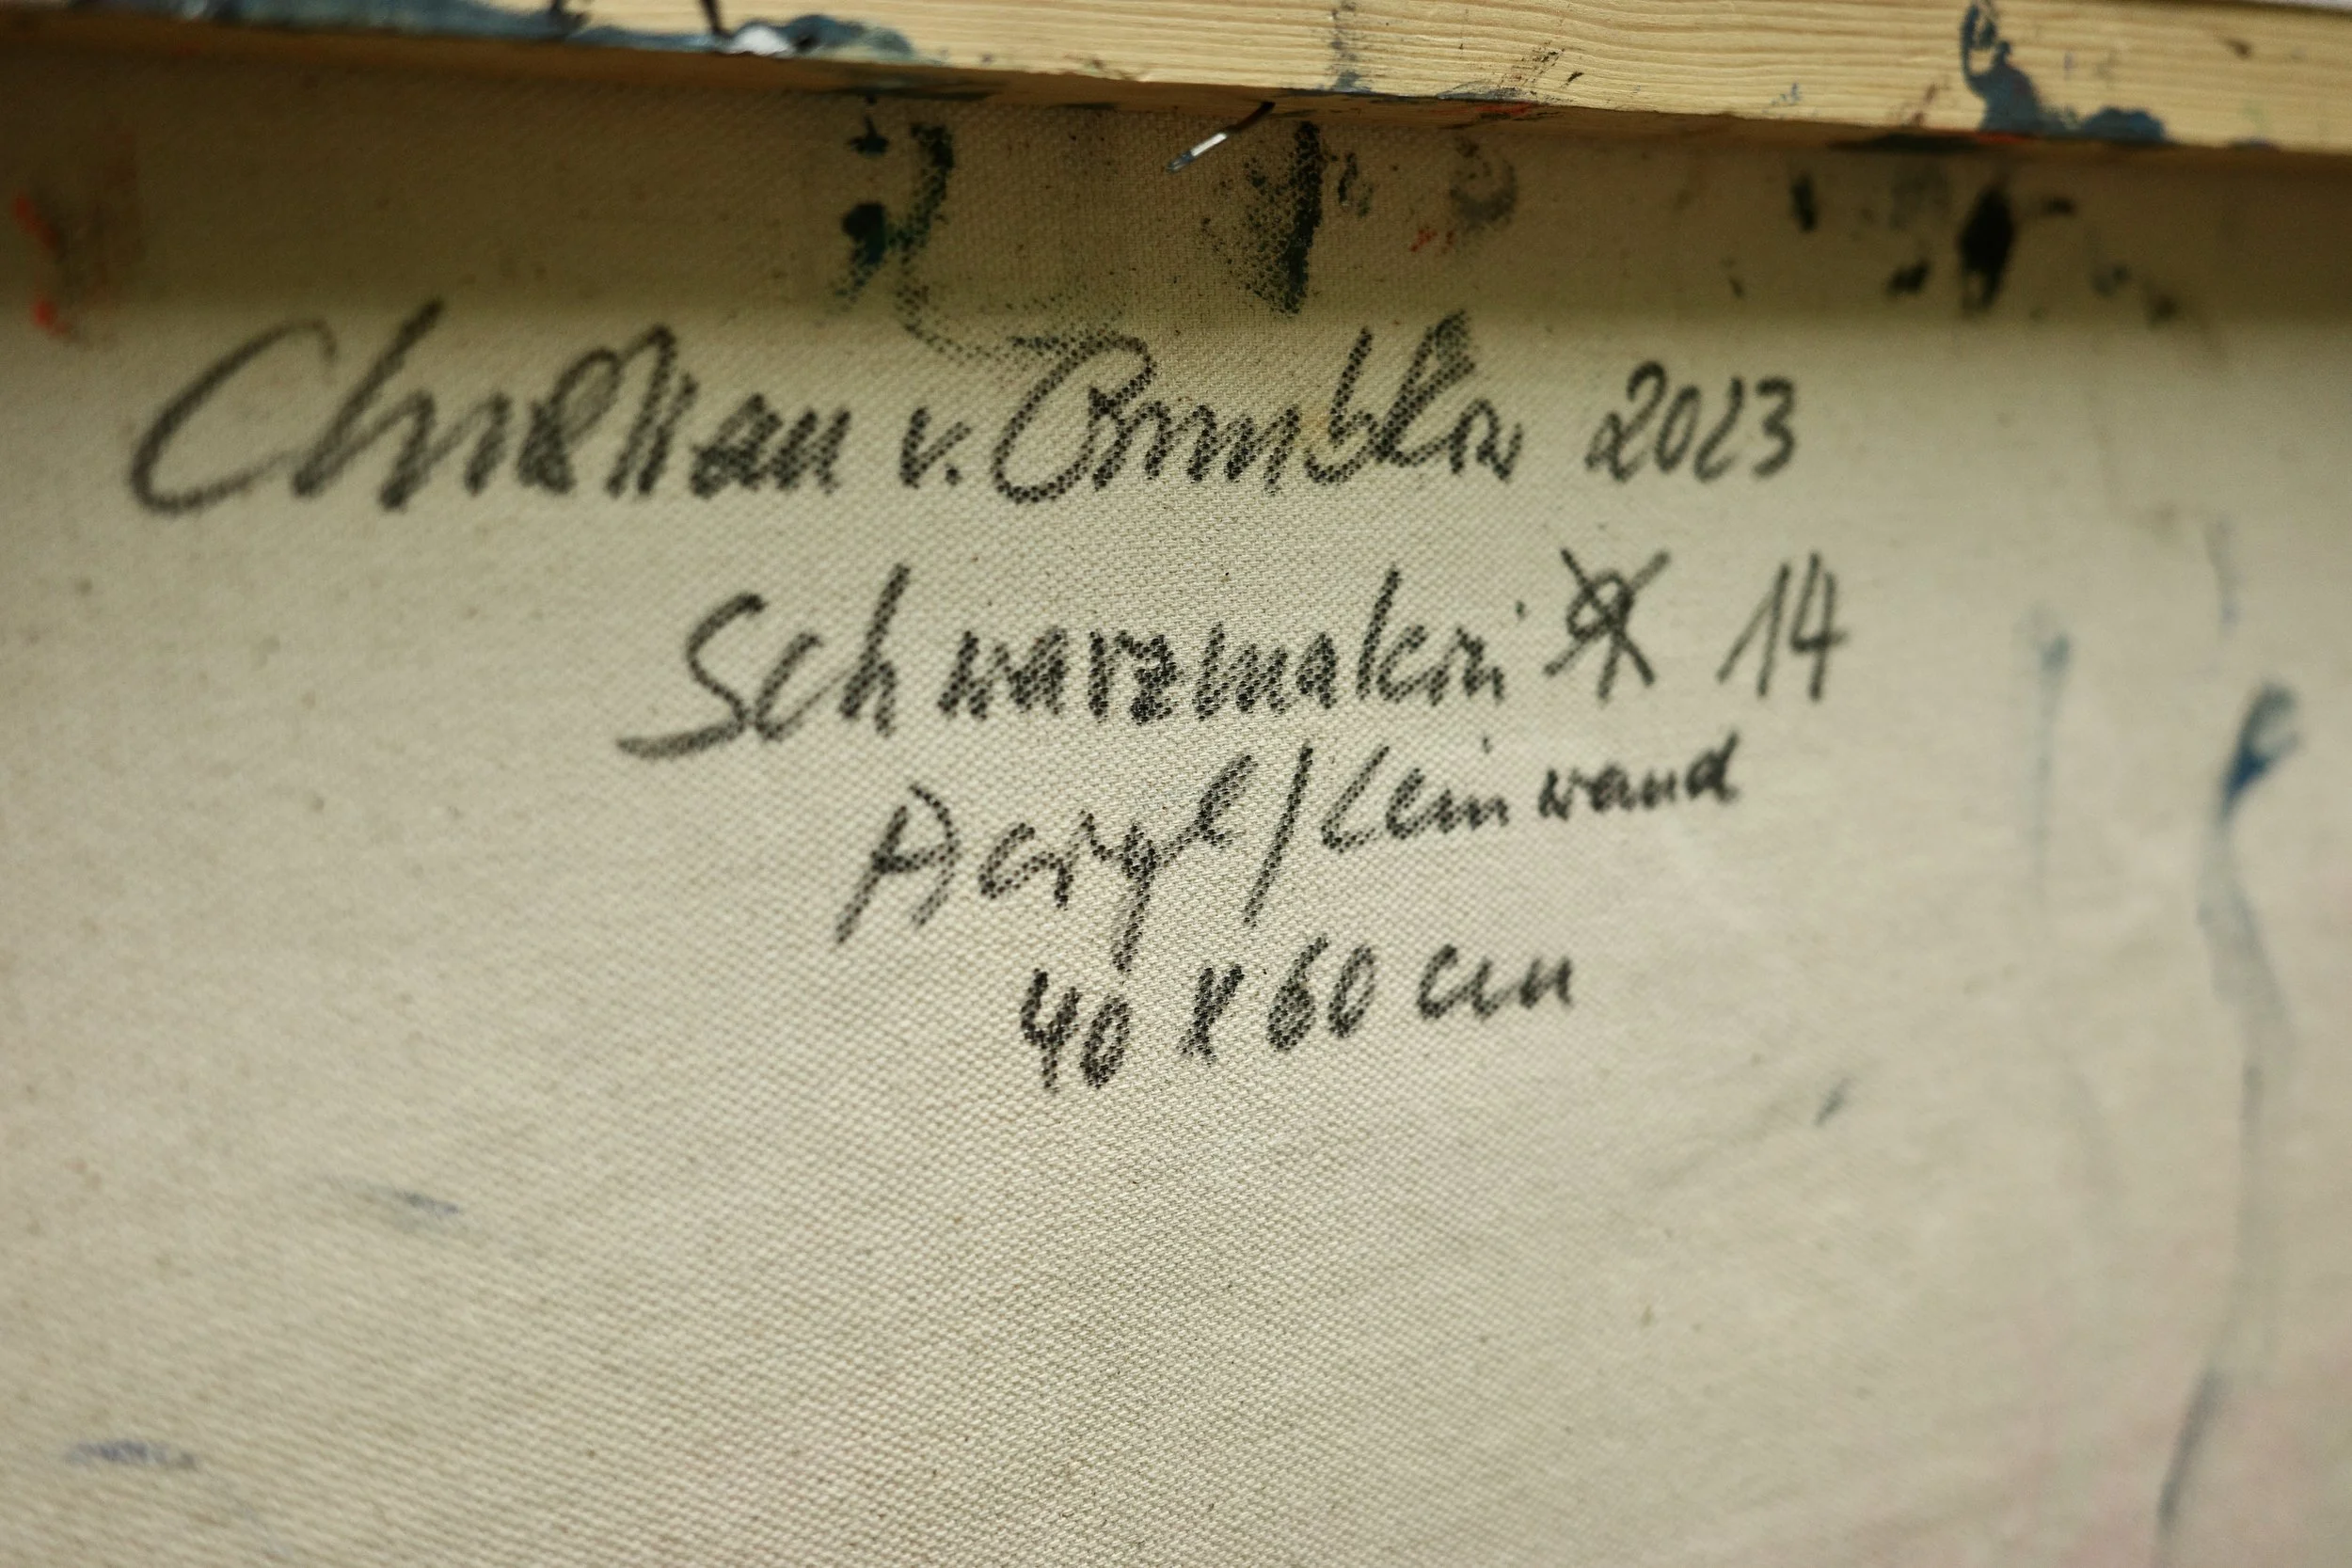 Christian v. Grumbkow 2023
Schwarzmalerei 14
Acryl/Leinwand
40 x 60 cm